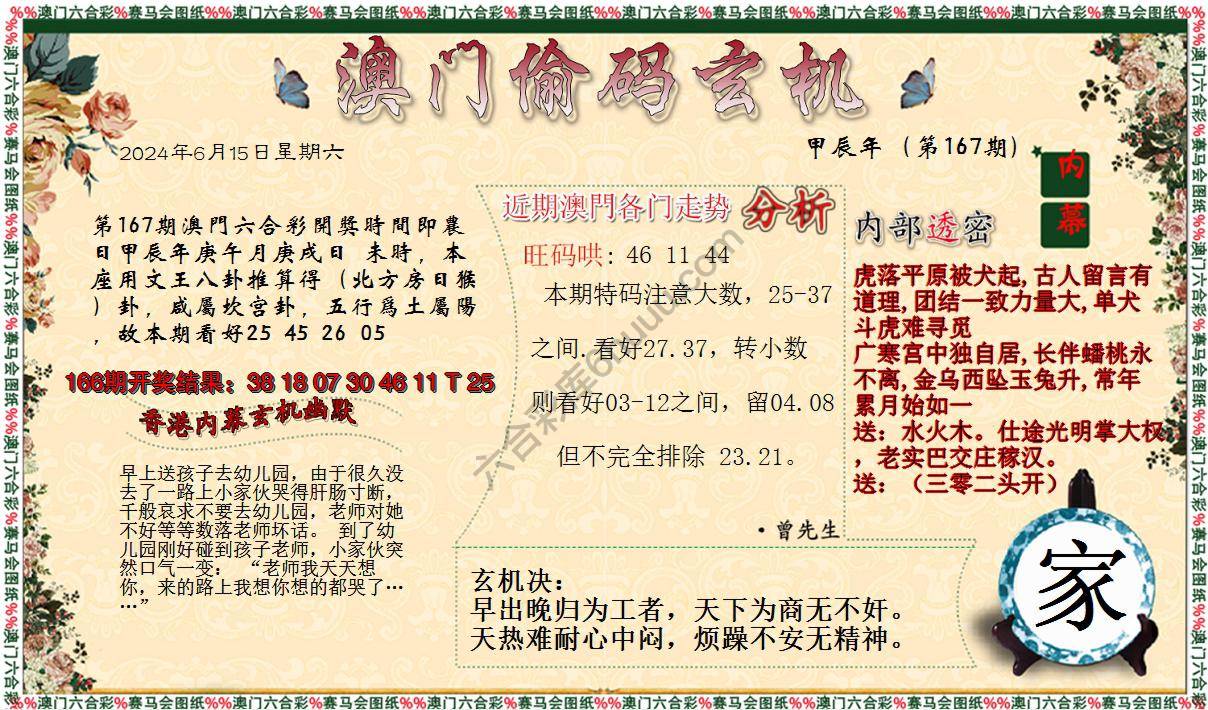 %%澳门六合彩%赛马会图纸%%澳门六合彩%赛马会图纸%%澳门六合彩%赛马会图纸%%澳门六合彩%赛马会图纸%%澳门六合彩%赛马会图纸%%澳门六合彩%赛马会图纸
澳门偷码玄机
2024年6月15日星期六
甲辰年（第167期）
内
幕
第167期澳門六合彩開獎時間即農
日甲辰年庚午月庚戌日 未時，本
座用文王八卦推算得（北方房日猴
）卦，咸屬坎宫卦，五行爲土屬陽
，故本期看好25 45 26 05
166期开奖结果：38 18 07 30 46 11 T 25
香港内幕玄机幽默
早上送孩子去幼儿园，由于很久没
去了一路上小家伙哭得肝肠寸断，
千般哀求不要去幼儿园，老师对她
不好等等数落老师坏话。 到了幼
儿园刚好碰到孩子老师，小家伙突
然口气一变： “老师我天天想
你，来的路上我想你想的都哭了…
…”
近期澳門各门走势 分析
旺码哄: 46 11 44
本期特码注意大数，25-37
之间.看好27.37，转小数
则看好03-12之间，留04.08
但不完全排除 23.21。
·曾先生
内部透密
虎落平原被犬起,古人留言有
道理,团结一致力量大,单犬
斗虎难寻觅
广寒宫中独自居,长伴蟠桃永
不离,金乌西坠玉兔升,常年
累月始如一
送：水火木。仕途光明掌大权
，老实巴交庄稼汉。
送：（三零二头开）
玄机决：
早出晚归为工者，天下为商无不奸。
天热难耐心中闷，烦躁不安无精神。
家
六合彩库6huuu.com
%%澳门六合彩%赛马会图纸%%澳门六合彩%赛马会图纸%%澳门六合彩%赛马会图纸%%澳门六合彩%赛马会图纸%%澳门六合彩%赛马会图纸%%澳门六合彩%赛马会图纸